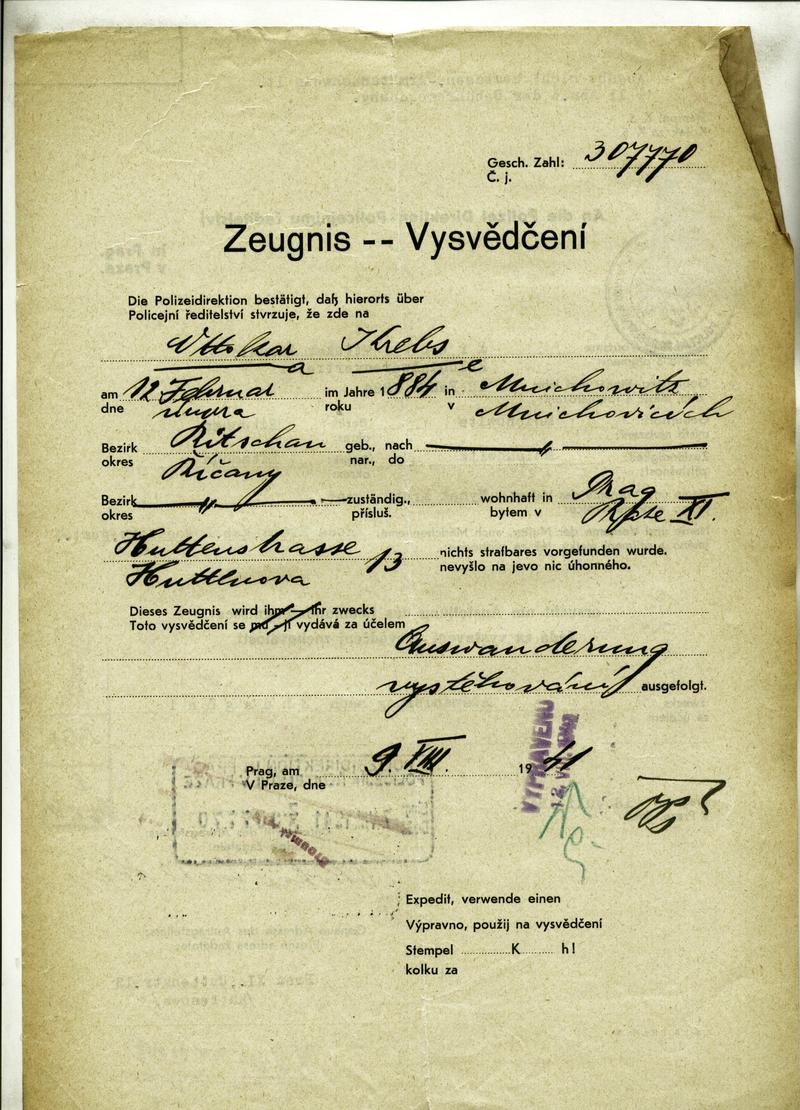 Gesch. Zahl: 307770
Č. j.
Zeugnis -- Vysvědčení
Die Polizeidirektion bestätigt, daß hierorts über
Policejní ředitelství stvrzuje, že zde na
Ottokar Krebs
a e
am 12 Februar im Jahre 1884 in Mnichowitz
dne února roku v Mnichovicích
Bezirk Ritschan geb., nach
okres Říčany nar., do
Bezirk zuständig., wohnhaft in Prag
okres přísluš. bytem v Praze XI.
Huttenstrasse 13 nichts strafbares vorgefunden wurde.
Huttenova nevyšlo na jevo nic úhonného.
Dieses Zeugnis wird ihm - ihr zwecks
Toto vysvědčení se mu - jí vydává za účelem
Auswanderung
vystěhování ausgefolgt.
Prag, am 9. VIII. 1941
V Praze, dne
VYPRAVENO
12. VIII.
Expedit, verwende einen
Výpravno, použij na vysvědčení
Stempel K h!
kolku za